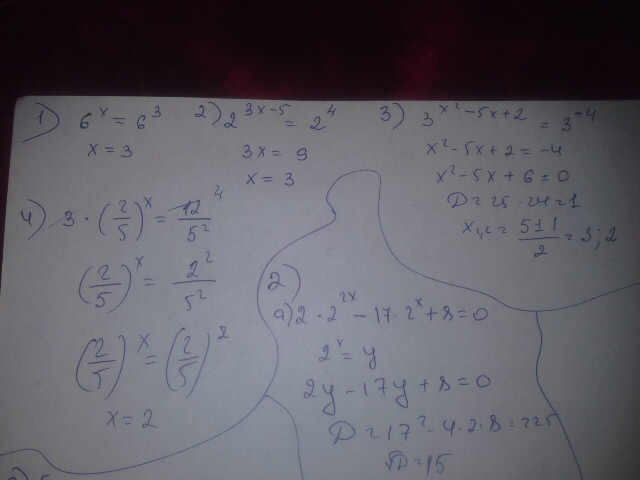 1) 6^x = 6^3
x = 3
2) 2^{3x-5} = 2^4
3x = 9
x = 3
3) 3^{x²-5x+2} = 3^{-4}
x²-5x+2 = -4
x²-5x+6 = 0
D = 25-24 = 1
x₁,₂ = (5±1)/2 = 3; 2
4) 3·(2/5)^x = 12/5² 4
(2/5)^x = 2²/5²
(2/5)^x = (2/5)^2
x = 2
2)
a) 2·2^{2x} - 17·2^x + 8 = 0
2^x = y
2y - 17y + 8 = 0
D = 17² - 4·2·8 = 225
√D = 15